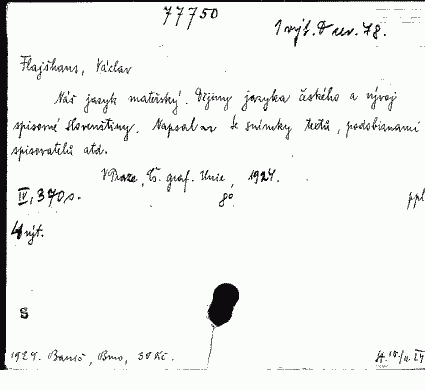 77750
1 výt. D rev. 78.
Flajšhans, Václav
Náš jazyk mateřský. Dějiny jazyka českého a vývoj
spisovné slovenštiny. Napsal se snímky textů, podobiznami
spisovatelů atd.
V Praze, Č. graf. Unie, 1924.
IV, 370 s. 8° ppl
4 výt.
S
1924. Barvič, Brno, 38 Kč.